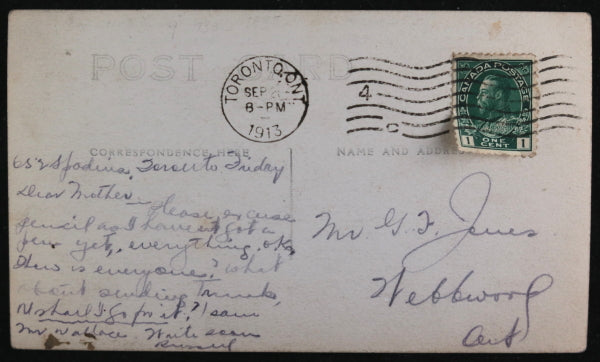 POST CARD
TORONTO, ONT.
SEP 26
8-PM
1913
4
C
CANADA POSTAGE
1 ONE CENT 1
CORRESPONDENCE HERE
NAME AND ADDRESS
652 Spadina, Toronto Friday
Dear Mother - please excuse
pencil as I haven't got a
pen yet, everything o.k.
How is everyone? What
about sending
shall I go for it? I saw
Mr Wallace. Write soon
Russell
Mr G. F. Jones
Webbwood
Ont